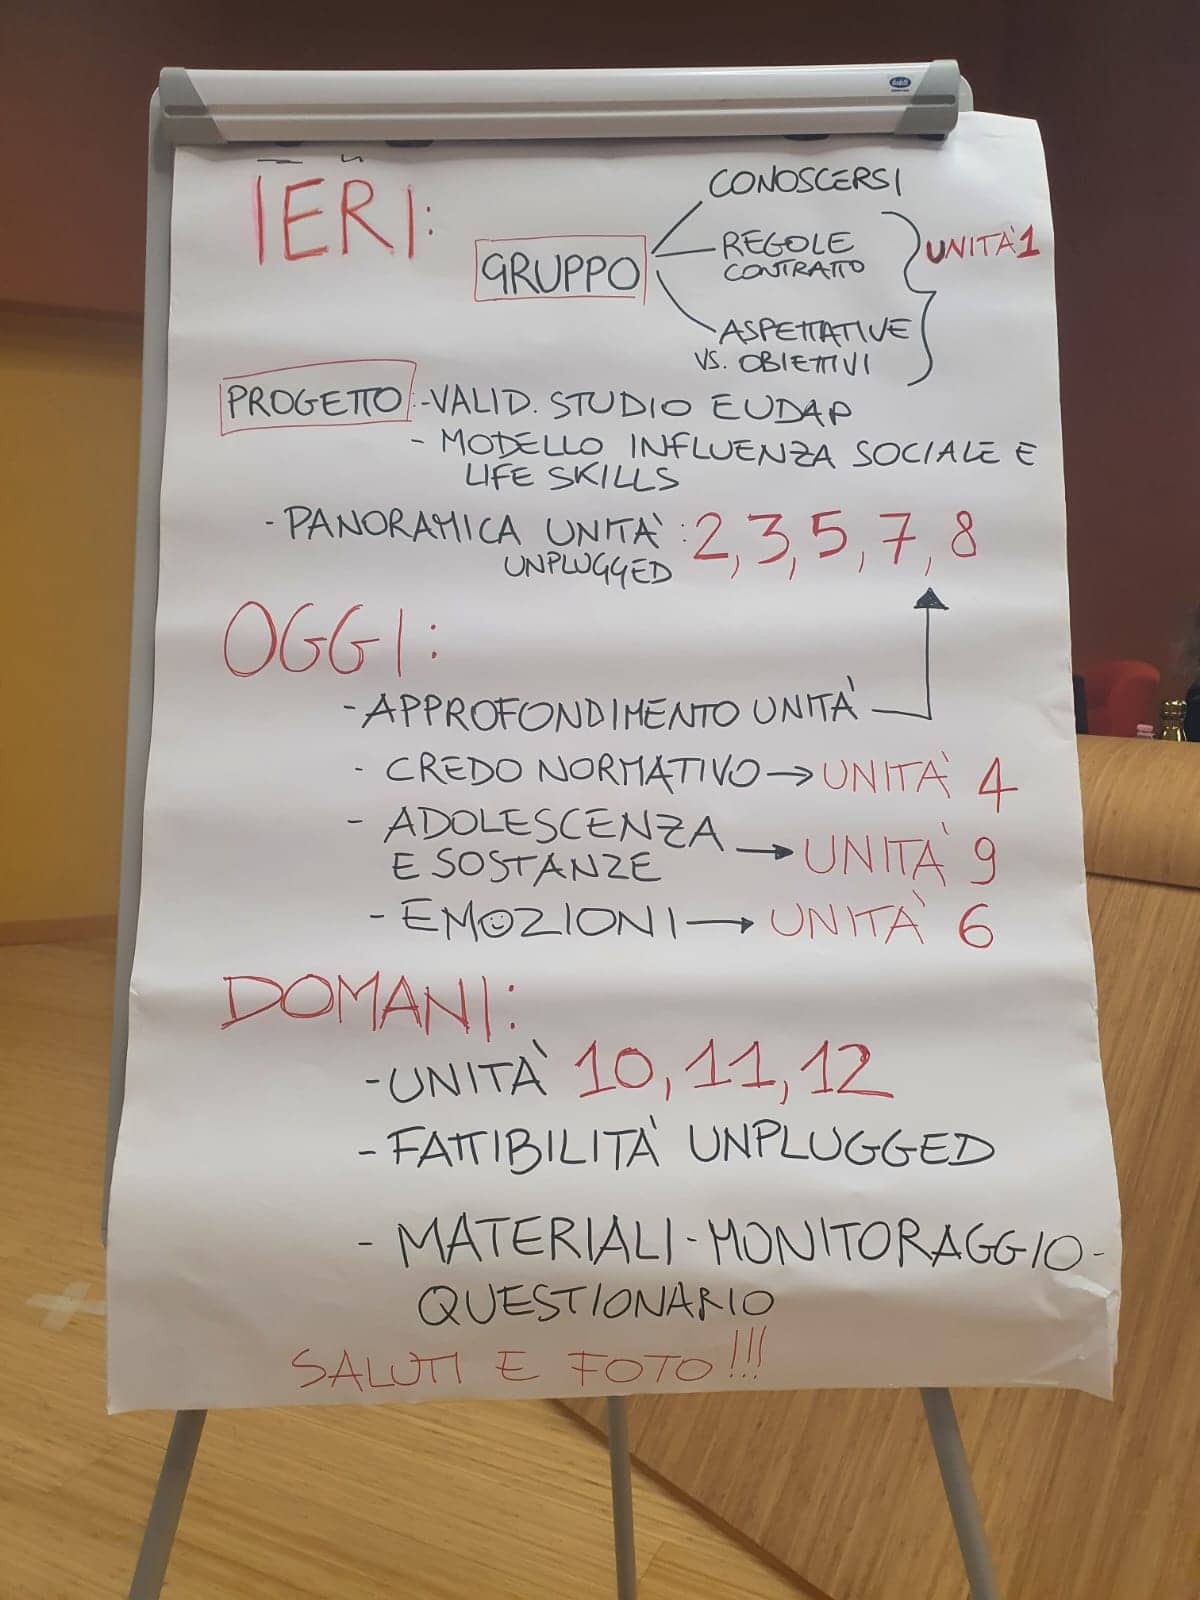 IERI:
GRUPPO
CONOSCERSI
REGOLE
CONTRATTO
ASPETTATIVE
VS. OBIETTIVI
UNITÀ 1
PROGETTO :-VALID. STUDIO EUDAP
- MODELLO INFLUENZA SOCIALE E
LIFE SKILLS
- PANORAMICA UNITÀ : 2, 3, 5, 7, 8
UNPLUGGED
OGGI:
- APPROFONDIMENTO UNITÀ
- CREDO NORMATIVO → UNITÀ 4
- ADOLESCENZA
E SOSTANZE → UNITÀ 9
- EMOZIONI → UNITÀ 6
DOMANI:
- UNITÀ 10, 11, 12
- FATTIBILITÀ UNPLUGGED
- MATERIALI - MONITORAGGIO -
QUESTIONARIO
SALUTI E FOTO!!!